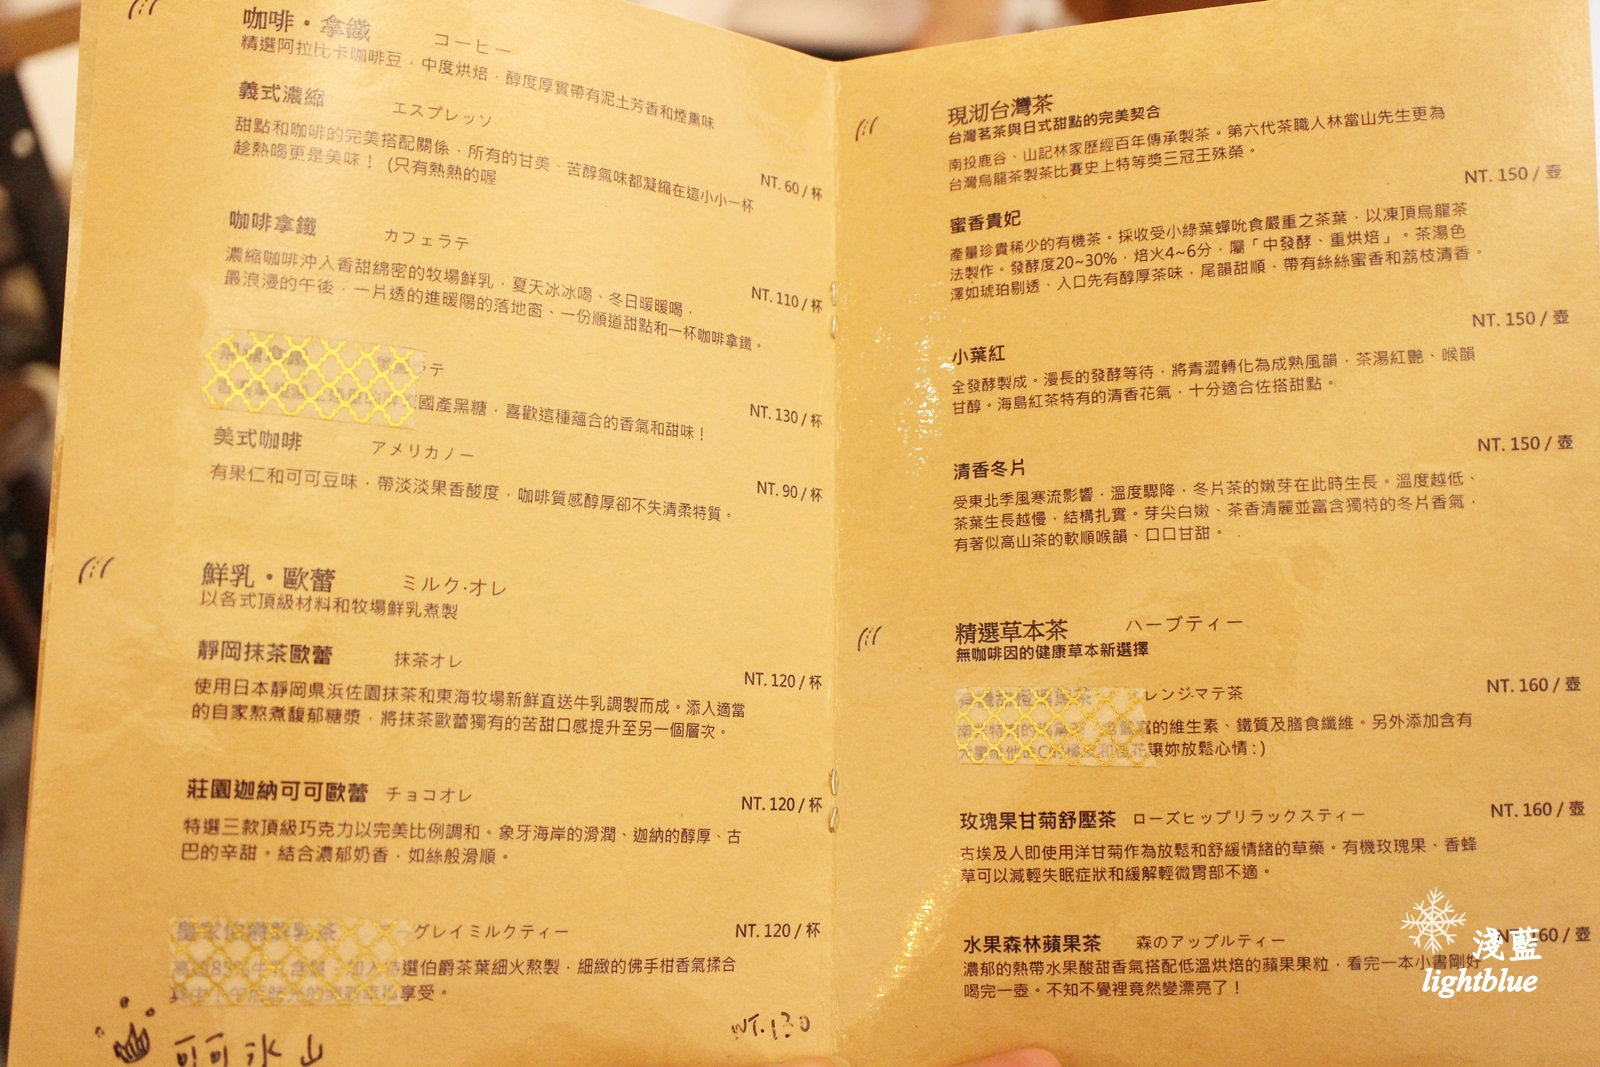 咖啡・拿鐵 コーヒー
精選阿拉比卡咖啡豆，中度烘焙，醇度厚實帶有泥土芳香和煙熏味
義式濃縮 エスプレッソ
NT. 60 / 杯
甜點和咖啡的完美搭配關係，所有的甘美、苦醇氣味都凝縮在這小小一杯
趁熱喝更是美味！ (只有熱熱的喔
咖啡拿鐵 カフェラテ
NT. 110 / 杯
濃縮咖啡沖入香甜綿密的牧場鮮乳，夏天冰冰喝，冬日暖暖喝，
最浪漫的午後，一片透的進暖陽的落地窗、一份順道甜點和一杯咖啡拿鐵。
ラテ
NT. 130 / 杯
國產黑糖，喜歡這種蘊合的香氣和甜味！
美式咖啡 アメリカノー
NT. 90 / 杯
有果仁和可可豆味，帶淡淡果香酸度，咖啡質感醇厚卻不失清柔特質。
鮮乳・歐蕾 ミルク・オレ
以各式頂級材料和牧場鮮乳煮製
靜岡抹茶歐蕾 抹茶オレ
NT. 120 / 杯
使用日本靜岡県浜佐園抹茶和東海牧場新鮮直送牛乳調製而成。添入適當
的自家熬煮馥郁糖漿，將抹茶歐蕾獨有的苦甜口感提升至另一個層次。
莊園迦納可可歐蕾 チョコオレ
NT. 120 / 杯
特選三款頂級巧克力以完美比例調和。象牙海岸的滑潤、迦納的醇厚、古
巴的辛甜。結合濃郁奶香，如絲般滑順。
皇家伯爵茶乳茶 ーグレイミルクティー
NT. 120 / 杯
選伯爵茶葉細火熬製，細緻的佛手柑香氣揉合
享受。
可可冰山
NT. 130
現沏台灣茶
台灣茗茶與日式甜點的完美契合
南投鹿谷、山記林家歷經百年傳承製茶。第六代茶職人林當山先生更為
台灣烏龍茶製茶比賽史上特等獎三冠王殊榮。
NT. 150 / 壺
蜜香貴妃
產量珍貴稀少的有機茶。採收受小綠葉蟬吮食嚴重之茶葉，以凍頂烏龍茶
法製作。發酵度20~30%，焙火4~6分，屬「中發酵、重烘焙」。茶湯色
澤如琥珀剔透、入口先有醇厚茶味，尾韻甜順，帶有絲絲蜜香和荔枝清香。
NT. 150 / 壺
小葉紅
全發酵製成。漫長的發酵等待，將青澀轉化為成熟風韻，茶湯紅艷、喉韻
甘醇。海島紅茶特有的清香花氣，十分適合佐搭甜點。
NT. 150 / 壺
清香冬片
受東北季風寒流影響，溫度驟降，冬片茶的嫩芽在此時生長。溫度越低、
茶葉生長越慢，結構扎實。芽尖白嫩、茶香清麗並富含獨特的冬片香氣，
有著似高山茶的軟順喉韻、口口甘甜。
精選草本茶 ハーブティー
無咖啡因的健康草本新選擇
NT. 160 / 壺
レンジ・マテ茶
的維生素、鐵質及膳食纖維。另外添加含有
讓妳放鬆心情 : )
NT. 160 / 壺
玫瑰果甘菊舒壓茶 ローズヒップリラックスティー
古埃及人即使用洋甘菊作為放鬆和舒緩情緒的草藥。有機玫瑰果、香蜂
草可以減輕失眠症狀和緩解輕微胃部不適。
NT. 160 / 壺
水果森林蘋果茶 森のアップルティー
濃郁的熱帶水果酸甜香氣搭配低溫烘焙的蘋果果粒，看完一本小書剛好
喝完一壺。不知不覺裡竟然變漂亮了！
淺藍
lightblue